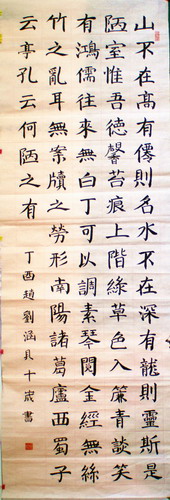 山不在高有僊則名水不在深有龍則靈斯是
陋室惟吾徳馨苔痕上階綠草色入簾青談笑
有鴻儒往來無白丁可以調素琴閱金經無絲
竹之亂耳無案牘之勞形南陽諸葛廬西蜀子
云亭孔云何陋之有
丁酉趙劉涵十歲書